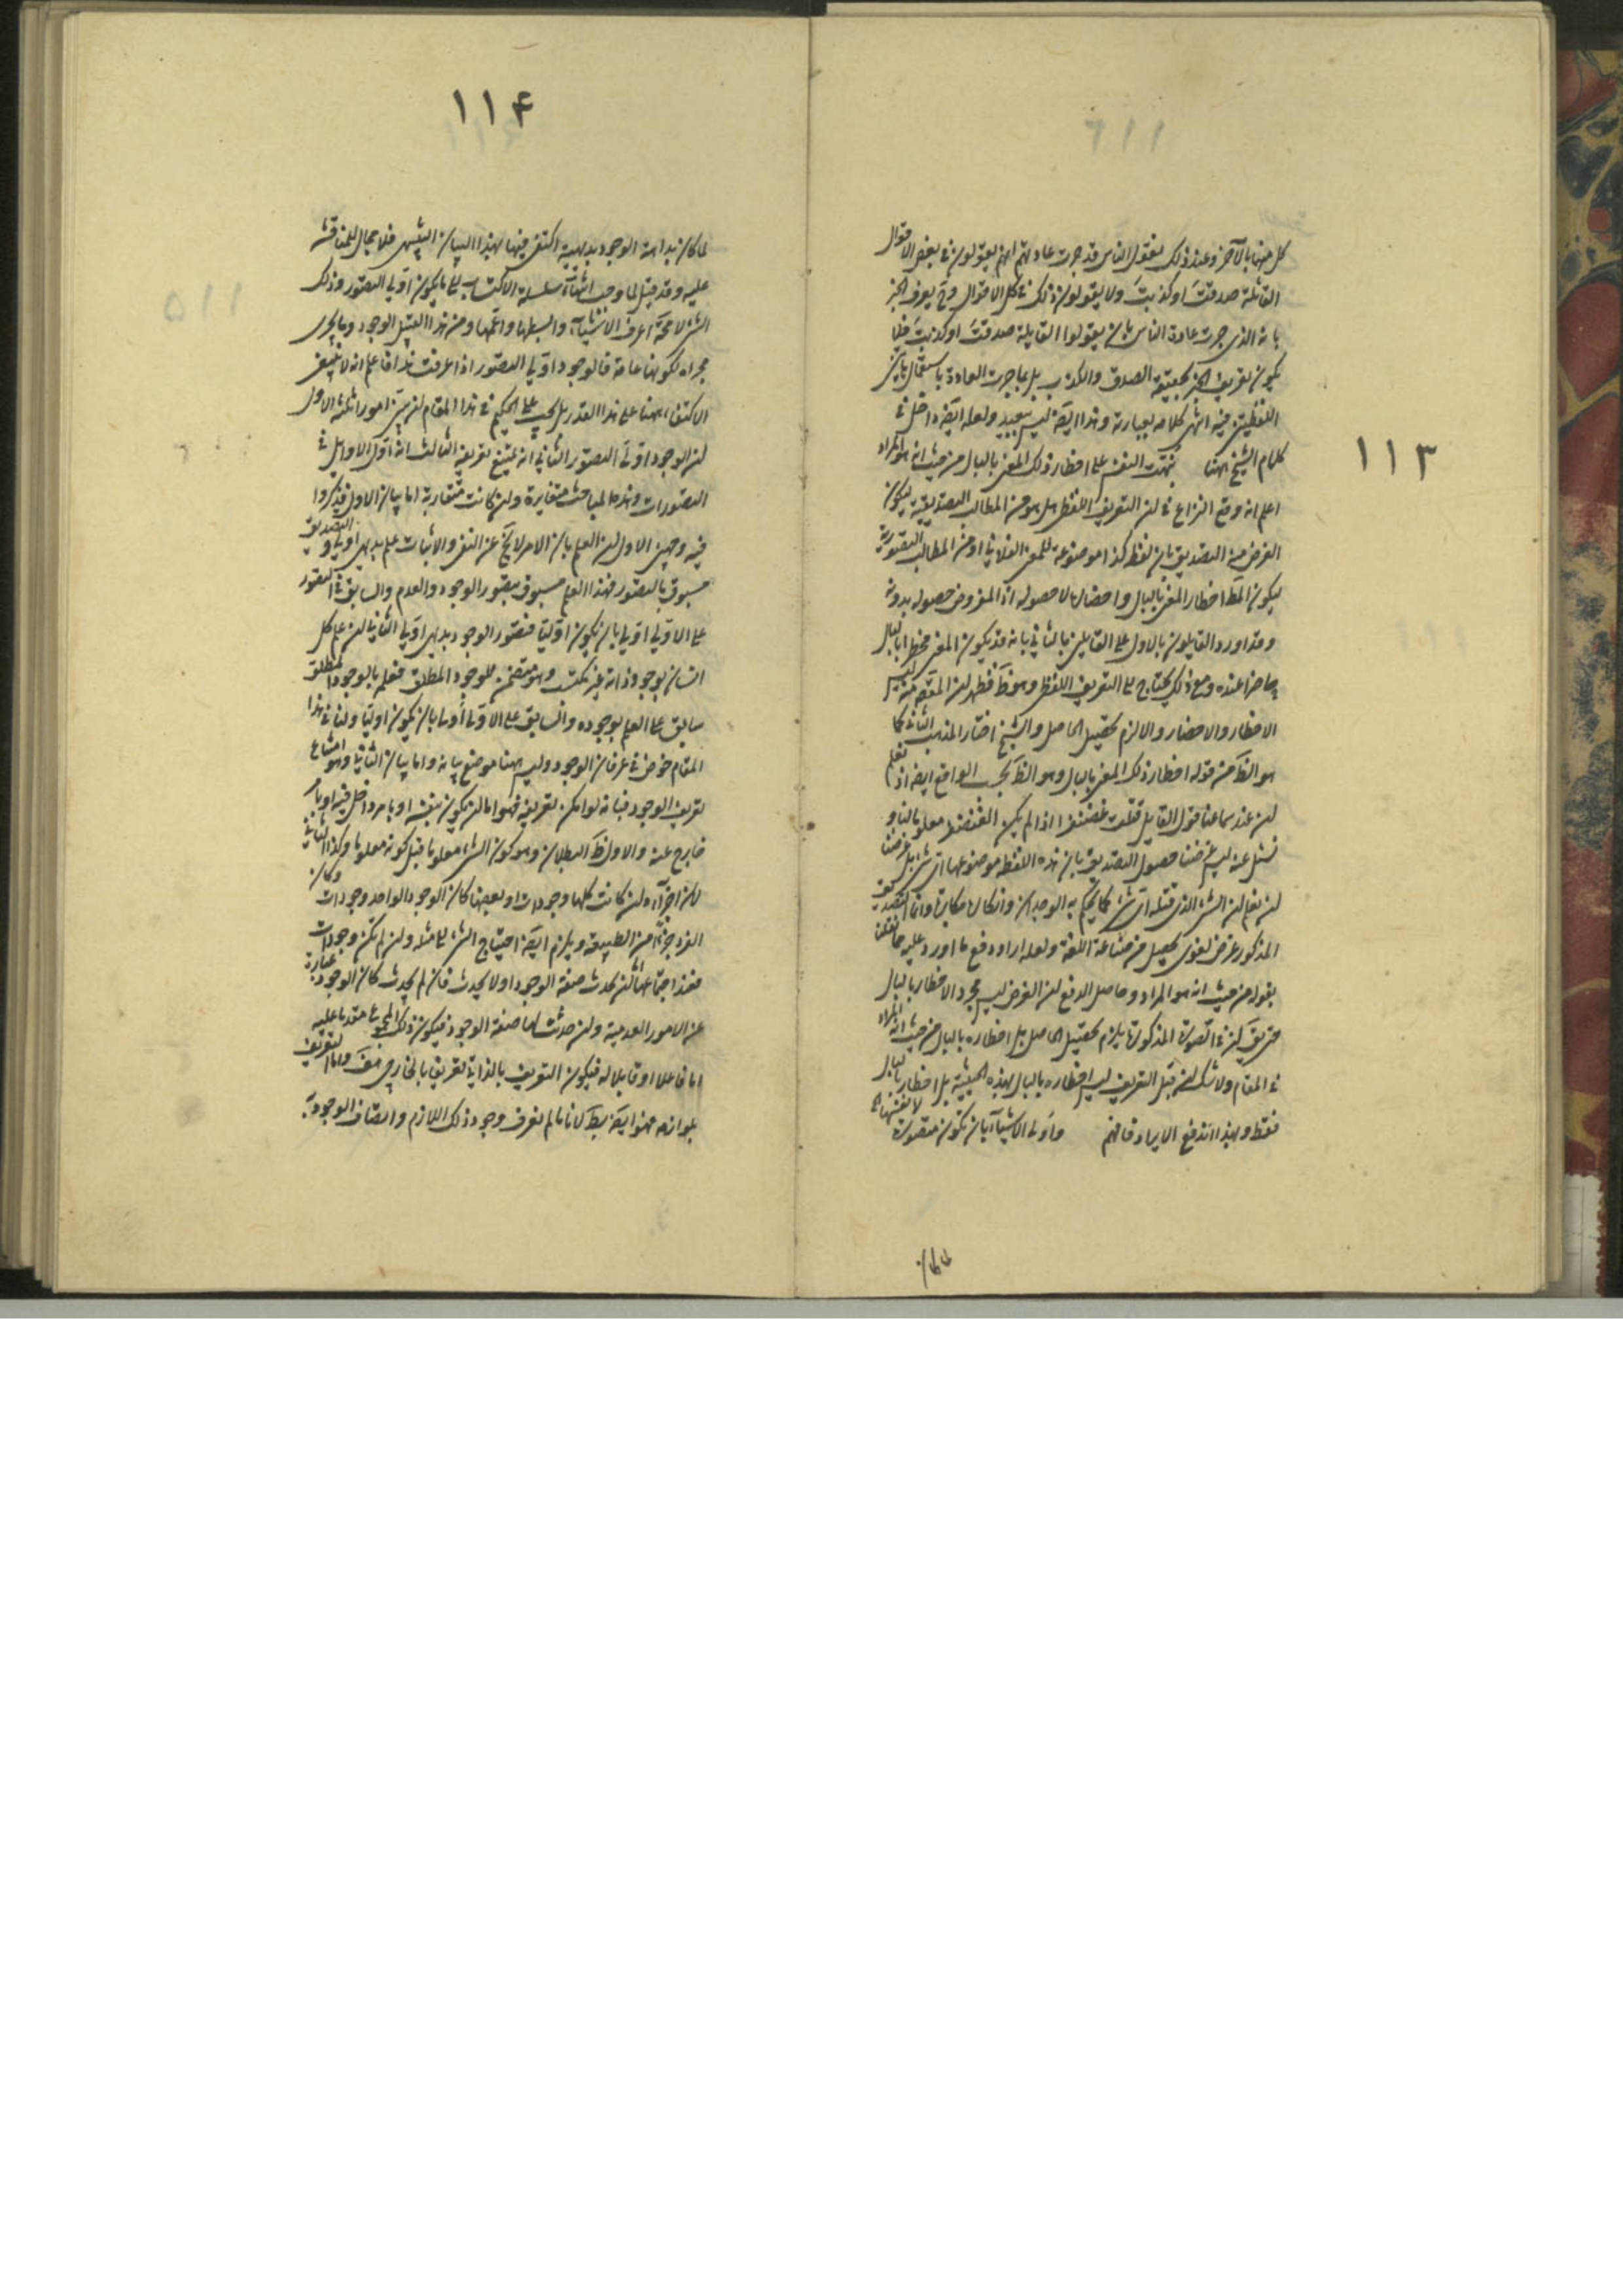 ١١٣
كل منهما بالآخر وعند ذلك نقول الناس قد جرت عادتهم انهم يقولون في بعض الاقوال
القائلة صدقتَ او كذبتَ ولا يقولون ذلك في كل الاقوال وح يعرف الخبر
بانه الذى جرت عادة الناس بان يقولوا لقايله صدقتَ او كذبتَ فلا
يكون تعريف الخبر بحقيقة الصدق والكذب بل بما جرت العادة باستعمال هاتين
اللفظتين فيه انتهى كلامه بعبارته وهذا ايضَ ليس ببعيد ولعله ايضَ داخل في
كلام الشيخ ههنا نبهت النفس على اخطار ذلك المعنى بالبال من حيث انه هو المراد
اعلم انه وقع النزاع في ان التعريف اللفظى هل هو من المطالب التصديقية ليكون
الغرض منه التصديق بان لفظ كذا موضوعة للمعنى الفلانى او من المطالب التصورية
ليكون المطَ اخطار المعنى بالبال واحضاره لا حصوله اذ المفروض حصوله بدونه
وقد اورد القايلون بالاول على القايلين بالثانى بانه قد يكون المعنى مخطرا بالبال
حاضرا عنده ومع ذلك يحتاج الى التعريف اللفظى وهو ظَ فظهر ان المقصَ منه ليس
الاخطار والاحضار والا لزم تحصيل الحاصل والشيخ اختار المذهب الثانى كما
هو الظَ من قوله اخطار ذلك المعنى بالبال وهو الظَ بحسب الواقع ايضَ اذ نعلم
ان عند سماعنا قول القايل قتلت غضنفرا اذا لم يكن الغضنفر معلوما لنا و
نسئل عنه ليس غرضنا حصول التصديق بان هذه اللفظه موضوعها اى شئ بل غرضنا
ان نعلم ان الشئ الذى قتله اى شئ كما يحكم به الوجدان وانكاره مكابرة وانما التصديق
المذكور غرض لغوى يحصل من صناعة اللغة ولعله اراد دفع ما اورد عليه مما نقلنا
بقوله من حيث انه هو المراد وحاصل الدفع ان الغرض ليس مجرد الاخطار بالبال
حتى يقَ ان في الصورة المذكورة يلزم تحصيل الحاصل بل اخطاره بالبال من حيث انه المراد
في المقام ولا شك ان قبل التعريف ليس اخطاره بالبال بهذه الحيثية بل اخطار بالبال
فقط وبهذا اندفع الايراد فافهم واولى الاشياء بان تكون متصورة لانفسها
لما كان
١١۴
لما كان بداهة الوجود بديهية اكتفى فيها بهذا البيان التنبيهى فلا مجال للمناقشه
عليه وقد قيل لما وجب انتهاء سلسلة الاكتساب الى ما يكون اوّلى التصور وذلك
الشئ لا محَ اعرف الاشياء وابسطها واعمها ومن هذا القبيل الوجود وما يجرى
مجراه لكونها عامة فالوجود اوّلى التصور اذا عرفت هذا فاعلم انه لا ينبغى
الاكتفاء ههنا على هذا القدر بل يجب على الحكيم في هذا المقام ان يبين امورا ثلثة الاول
ان الوجود اولى التصور الثانى انه يمتنع تعريفه الثالث انه اوّل الاوايل في
التصورات وهذه المباحث متغايرة وان كانت متقاربة اما بيان الاول فذكروا
فيه وجهين الاول ان العلم بان الامر لا يخَ عن النفى والاثبات علم بديهى اولى والتصديق
مسبوق بالتصور فهذا العلم مسبوق بتصور الوجود والعدم والسابق في التصور
على الاوّلى اوّلى بان يكون اوّليا فتصور الوجود بديهى اوّلى الثانى ان علم كل
انسان بوجود ذاته غير مكتسب وهو متضمن للوجود المطلق فعلم بالوجود المطلق
سابق على العلم بوجوده والسابق على الاولى اولى بان يكون اوليا ولنا في هذا
المقام خوض في عرفان الوجود وليس ههنا موضع بيانه واما بيان الثانى وهو امتناع
تعريف الوجود فبانه لو امكن تعريفه فهو اما ان يكون بنفسه او بامر داخل فيه او بامر
خارج عنه والاول ظَ البطلان وهو كون الشئ معلوما قبل كونه معلوما وكذا الثانى
لان اجزآءه ان كانت كلها وجودات او بعضها كان الوجود الواحد وجودات وكان
الفرد جزءا من الطبيعة ويلزم ايضَ احتياج الشئ الى مثله وان لم تكن وجودات
فعند اجتماعها ان تحدث صفة الوجود اولا يحدث فان لم يحدث كان الوجود عبارة
عن الامور العدمية وان حدثت لها صفة الوجود فيكون ذلك المجموع متقدما عليه
اما فاعلا او قابلا له فيكون التعريف بالذاتى تعريفا بالخارجى هفَ واما التعريف
بلوازمه فهو ايضَ بطَ لانا ما لم نعرف وجود ذلك اللازم واتصاف الوجود به